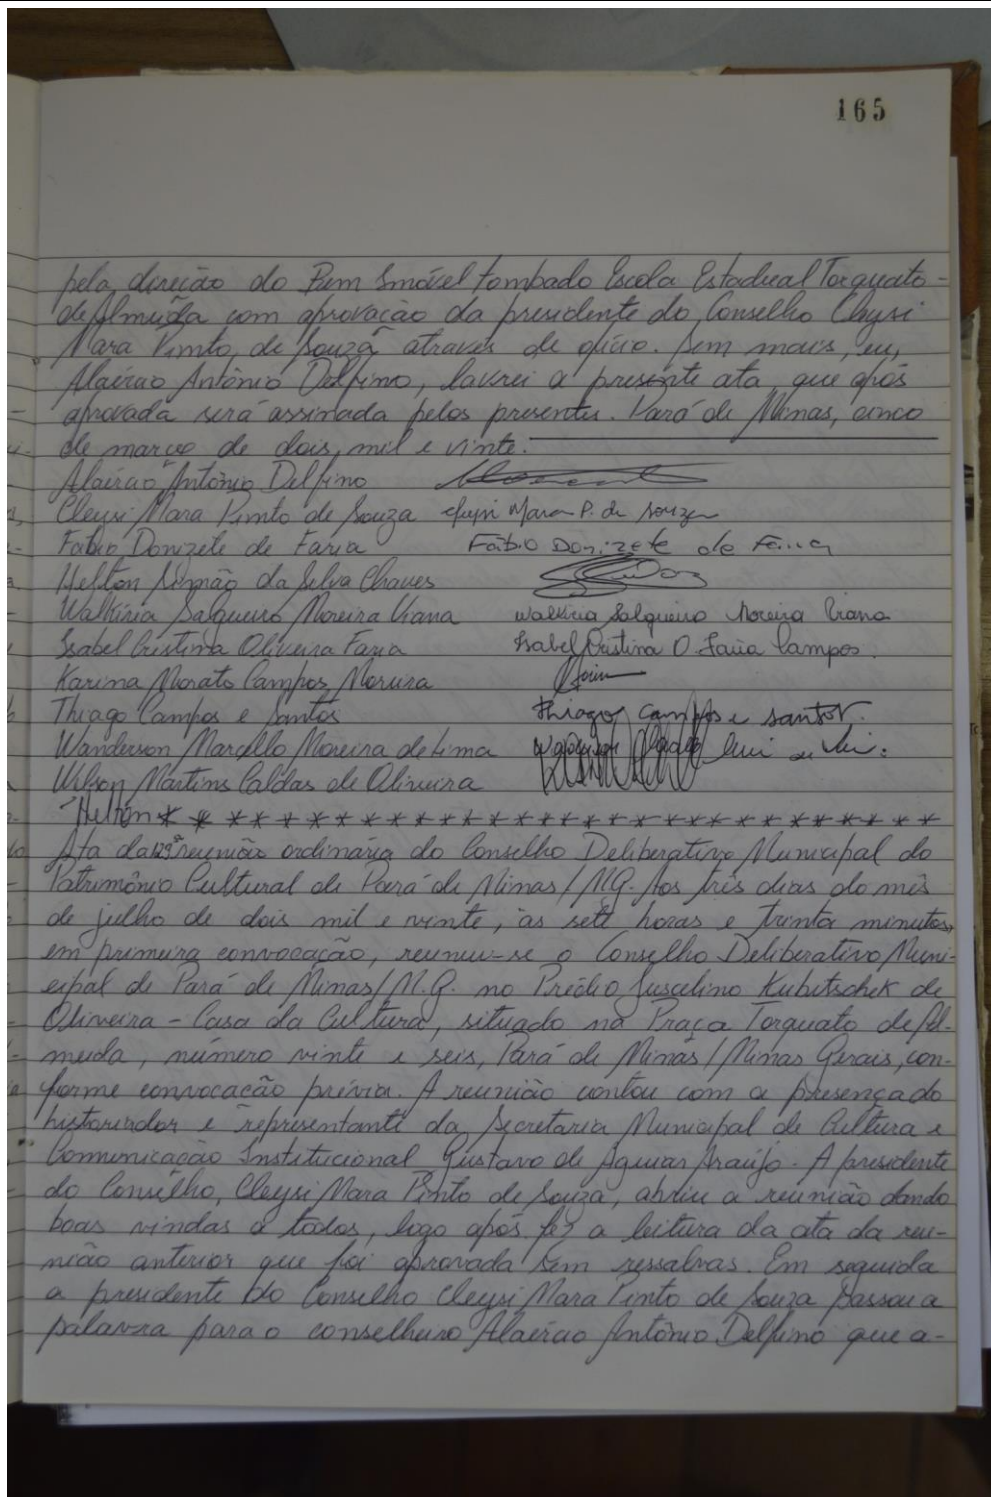 165
pela direção do Bem Imóvel tombado Escola Estadual Torquato-
de Almeida com aprovação da presidente do Conselho Cleysi
Mara Pinto de Souza através de ofício. Sem mais, eu,
Alaércio Antônio Delfino, lavrei a presente ata que após
aprovada será assinada pelos presentes. Pará de Minas, cinco
de março de dois mil e vinte.
Alaércio Antônio Delfino
Cleysi Mara Pinto de Souza Cleysi Mara P. de Souza
Fábio Donizete de Faria Fábio Donizete de Faria
Helton Simão da Selva Chaves
Walkíria Salgueiro Moreira Viana Walkiria Salgueiro Moreira Viana
Isabel Cristina Oliveira Faria Isabel Cristina O. Faria Campos
Karina Morato Campos Moreira
Thiago Campos e Santos Thiago Campos e Santos.
Wanderson Marcello Moreira de Lima
Wilson Martins Caldas de Oliveira
Helton * * * * * * * * * * * * * * * * * * * * * * * * * * * * *
Ata da 129ª reunião ordinária do Conselho Deliberativo Municipal do
Patrimônio Cultural de Pará de Minas/MG. Aos três dias do mês
de julho de dois mil e vinte, às sete horas e trinta minutos,
em primeira convocação, reuniu-se o Conselho Deliberativo Muni-
cipal de Pará de Minas/M.G. no Prédio Juscelino Kubitschek de
Oliveira - Casa da Cultura, situado na Praça Torquato de Al-
meida, número vinte e seis, Pará de Minas/Minas Gerais, con-
forme convocação prévia. A reunião contou com a presença do
historiador e representante da Secretaria Municipal de Cultura e
Comunicação Institucional Gustavo de Aguiar Araújo. A presidente
do Conselho, Cleysi Mara Pinto de Souza, abriu a reunião dando
boas vindas a todos, logo após fez a leitura da ata da reu-
nião anterior que foi aprovada sem ressalvas. Em seguida
a presidente do Conselho Cleysi Mara Pinto de Souza passou a
palavra para o conselheiro Alaércio Antônio Delfino que a-